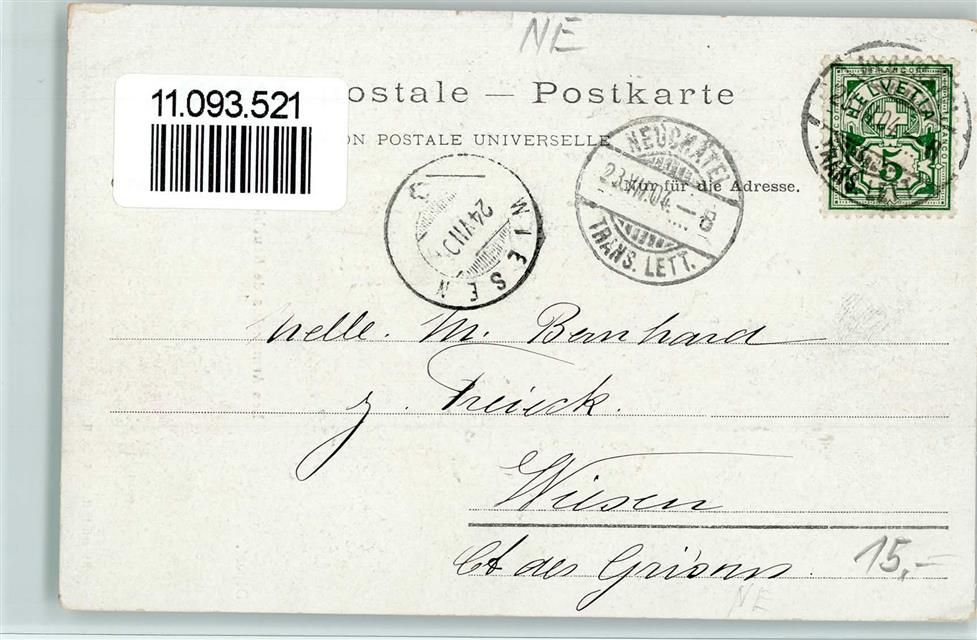 NE
11.093.521
ostale — Postkarte
ON POSTALE UNIVERSELLE
Nur für die Adresse.
HELVETIA
FRANCO
5
NEUCHÂTEL
23.VII.04.—8
TRANS. LETT.
WIESEN
24.VII.0
Melle. M. Bernhard
z. Freieck.
Wiesen
Ct des Grisons.
15,-
NE